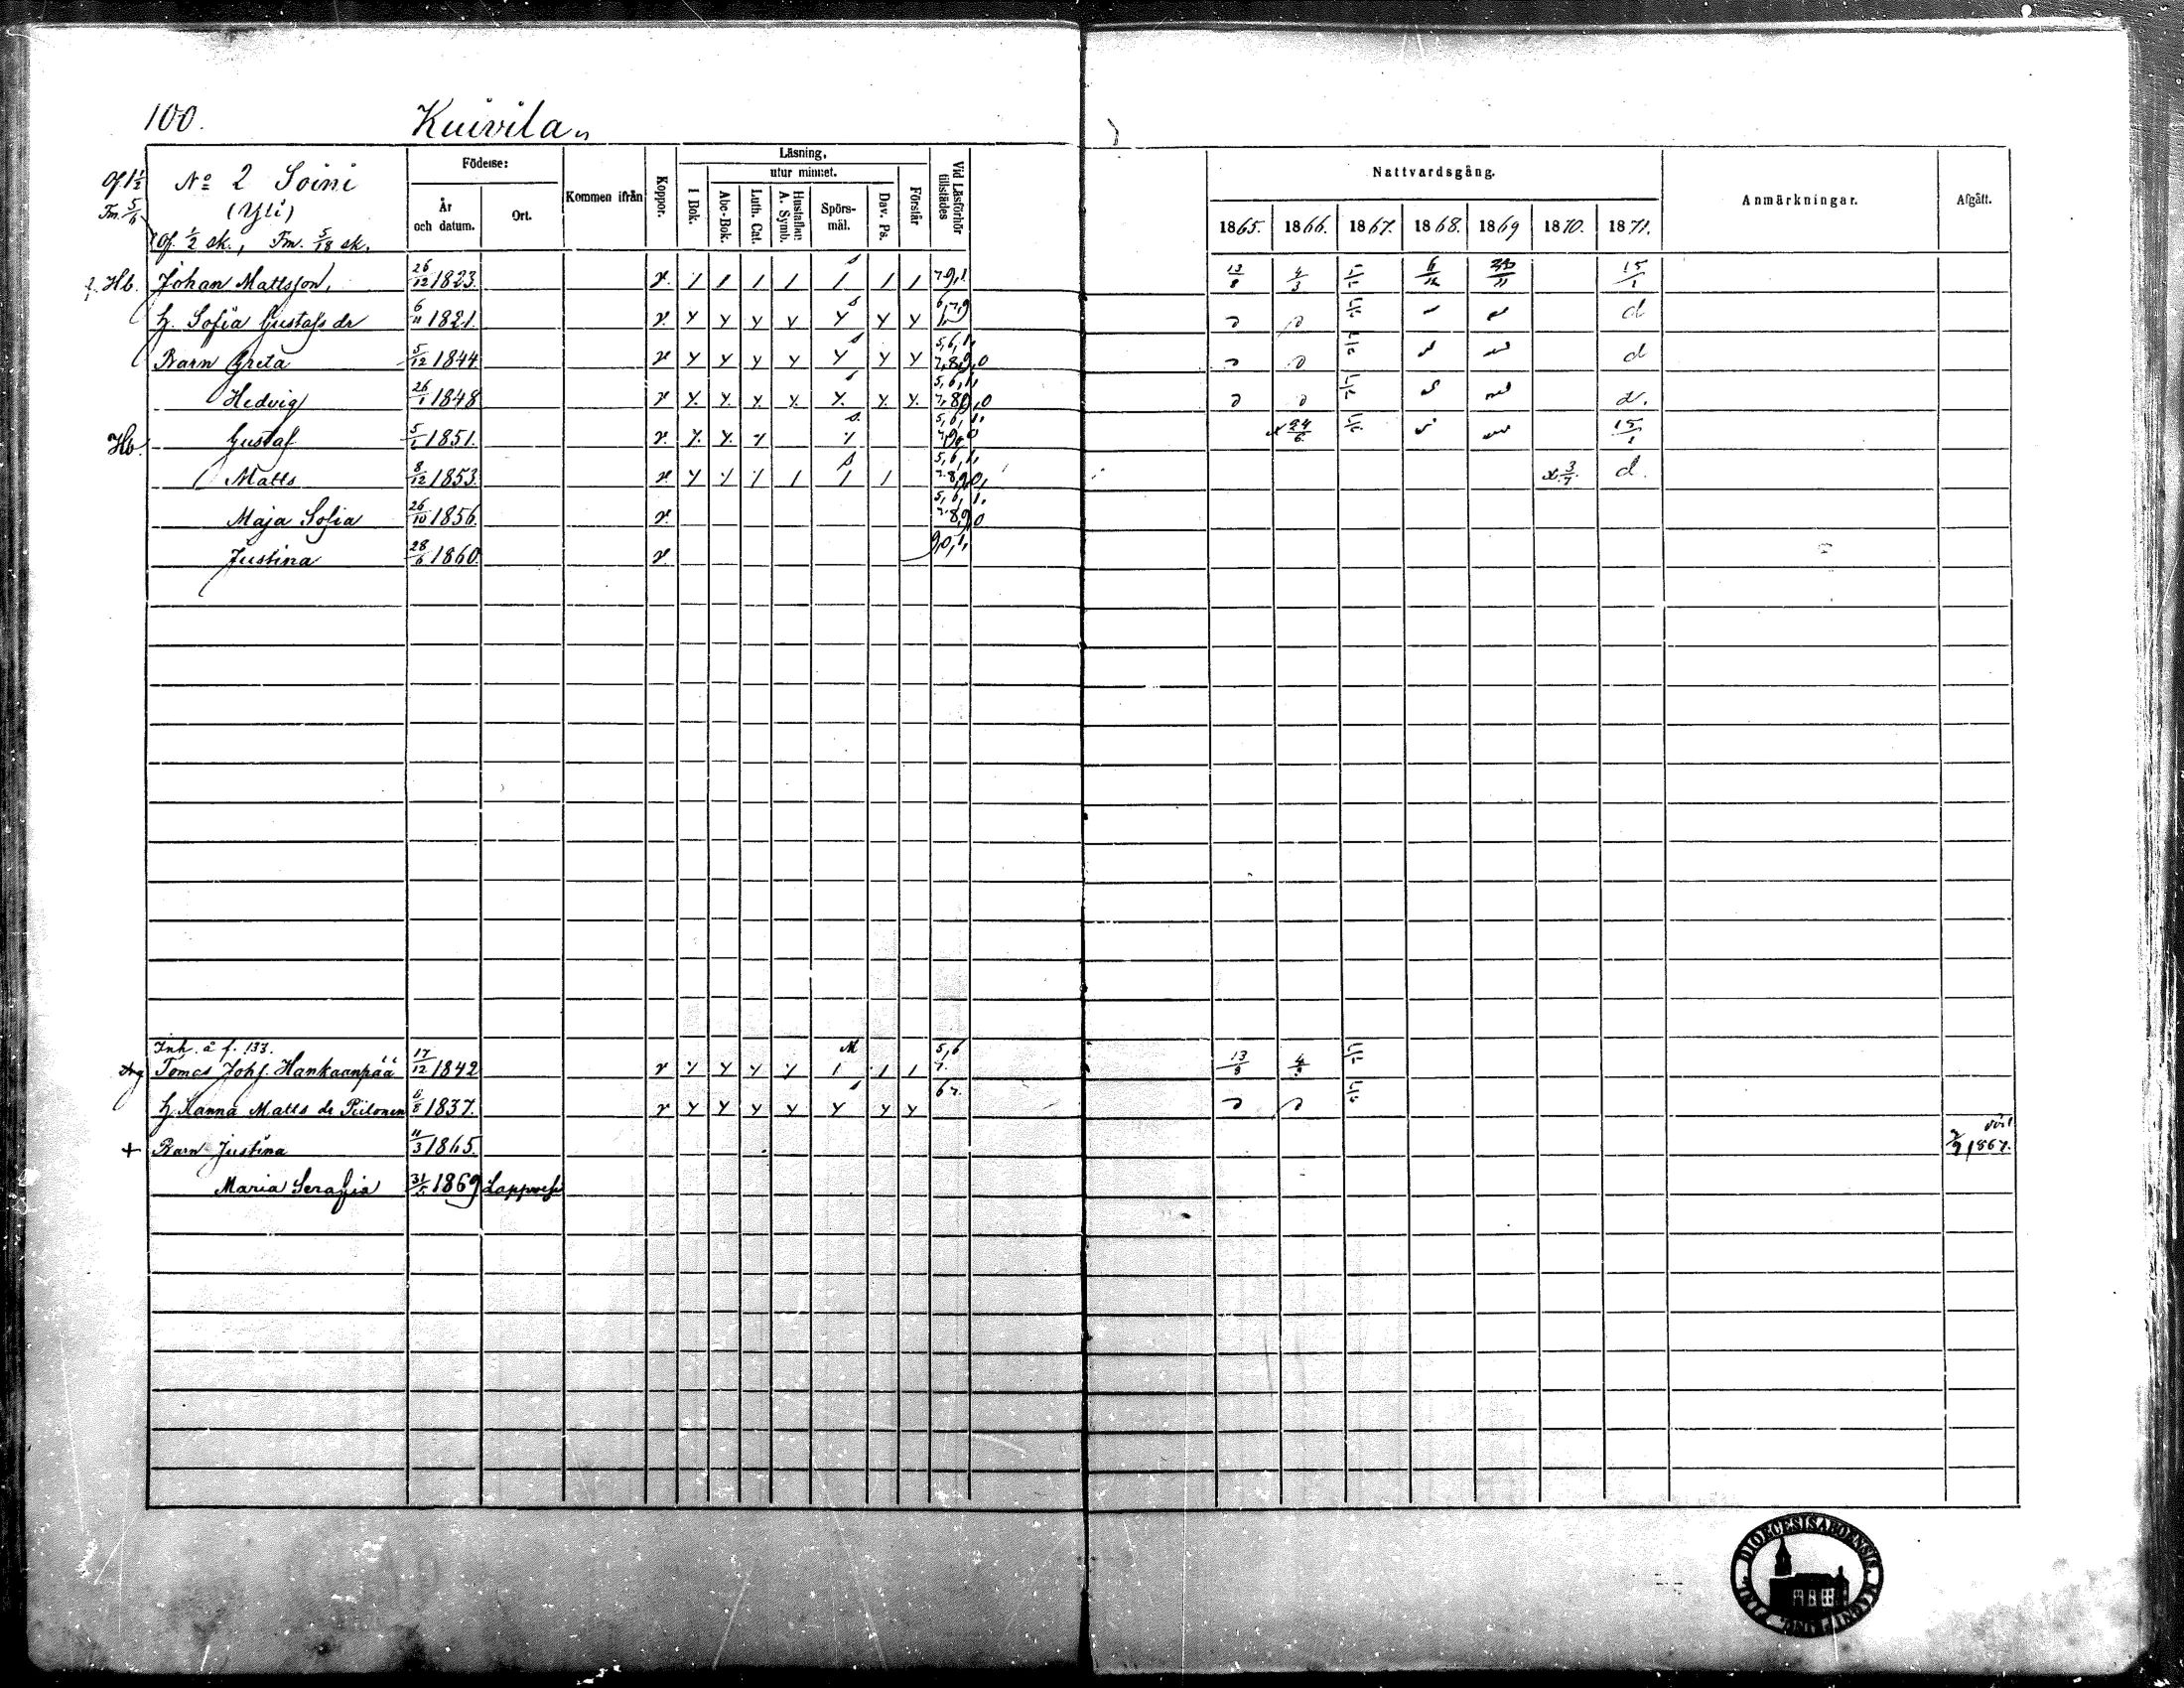 100. Kuivila
Of. 1 1/2 No 2 Soini
Fm. 5/6 (Yli)
Of. 1/2 sk., Fm. 5/18 sk.
Födelse:
År och datum.
Ort.
Kommen ifrån
Koppor.
Läsning,
utur minnet.
I Bok.
Abc-Bok.
Luth. Cat.
Hustaflan A. Symb.
Spörsmål.
Dav. Ps.
Förstår
Vid Läsförhör tillstädes
Nattvardsgång.
1865. 1866. 1867. 1868. 1869 1870. 1871.
Anmärkningar.
Afgått.
Hb. Johan Mattsson, 26/12 1823. v. 7,9,1 13/8 4/3 6/12 15/1
h. Sofia Gustafs dr 6/11 1821. v. y y y y y y y d
Barn Greta 5/12 1844 v y y y y y y y 5,6,1, 7,8,9,0 d
Hedvig 26/1 1848 v y. y. y. y. y. y. y. 5,6,1, 7,8,9,0 d.
Hb. Gustaf 5/1 1851. v. 5,6,1, x 24/6 15/1
Matts 8/12 1853. v 5,6,1, 7,8,9,0, x 3/7 d.
Maja Sofia 26/10 1856. v. 5,6,1, 7,8,9,0
Justina 28/6 1860. v. 9,0,1,
Inh. å f. 133.
Tomas Johs. Hankaanpää 17/12 1842 v 5,6 7. 13/8 4/3
h. Hanna Matts dr Piilonen 6/8 1837. v y y y y y y y 6 7.
+ Barn Justina 11/3 1865. död 2/9 1867.
Maria Serafia 31/5 1869 Lappvesi
DIOECESIS ABOENSIS MAGNI PRINC. FINL.